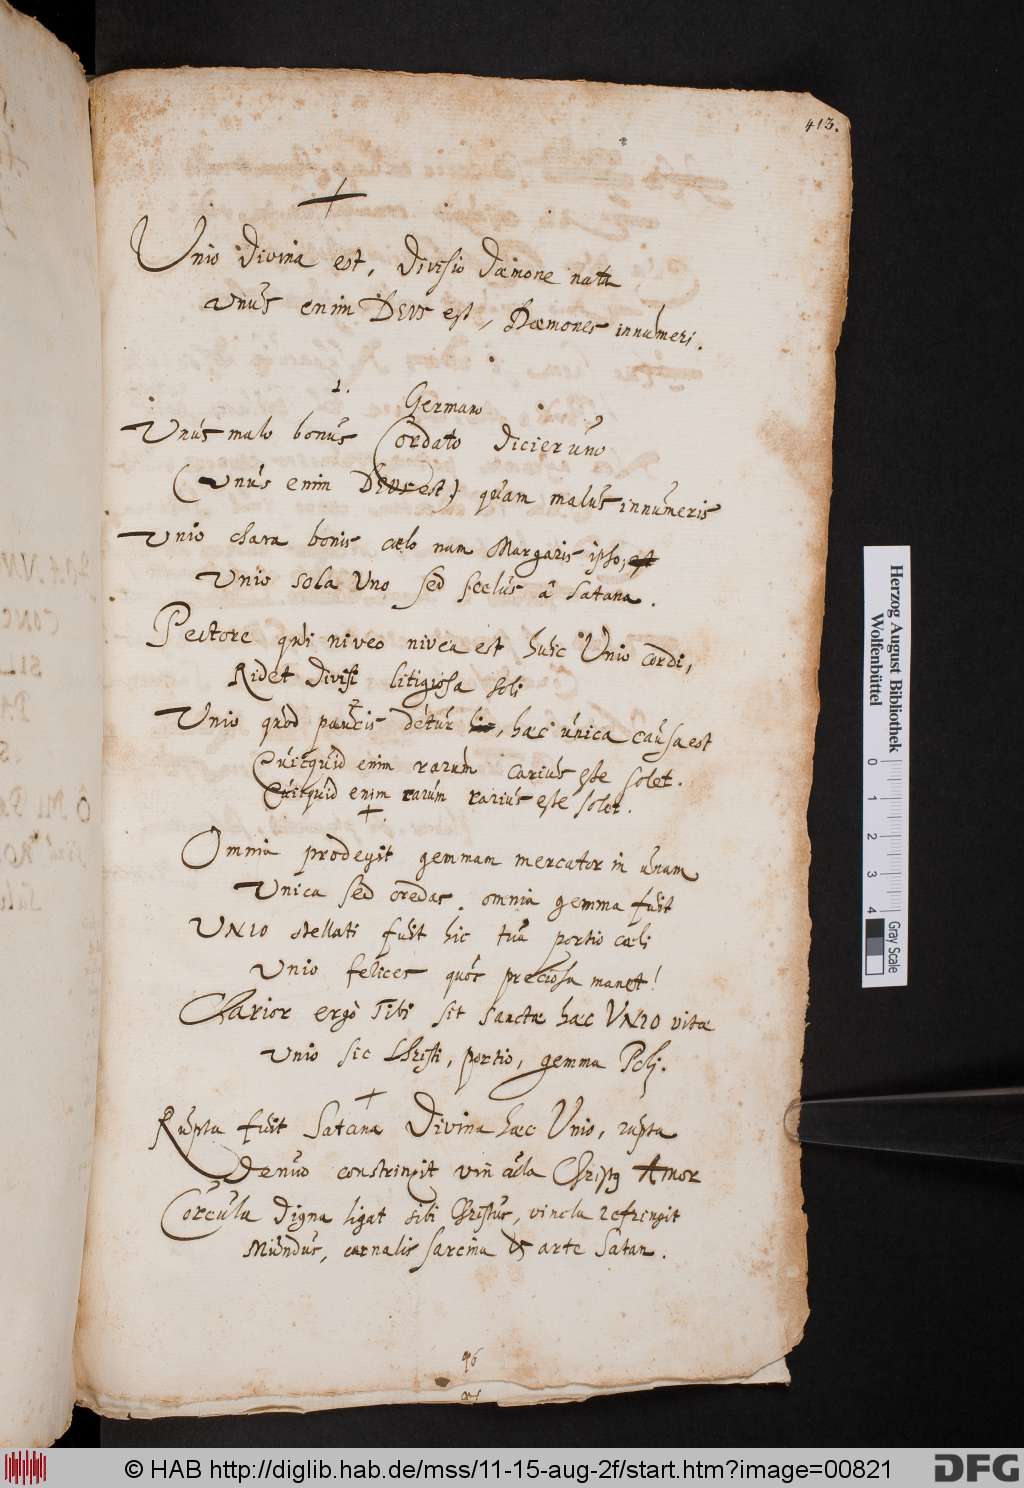 413.
Unio divina est, divisio daemone nata
unus enim DEVS est, Daemones innumeri.
1.
Germano
Unus malo bonus Cordato dicier uno
(unus enim DEVS est) quam malus innumeris
Unio chara bonis caelo nam Margaris ipso, est
Unio sola Uno sed scelus â Satana.
Pectore qui niveo nivea est huic Unio cordi,
Ridet divisi litigiosa soli
Unio quòd paucis détur hic, haec unica causa est
Quicquid enim rarum carius esse solet.
Quicquid enim rarum rarius esse solet.
Omnia prodegit gemmam mercator in unam
Unica sed credas. omnia gemma fuit
UNIO stellati fuit hic tua portio caeli
Unio felices quos preciosa manet!
Charior ergò Tibi sit sancta haec VNIO vitae
Unio sic Christi, portio, gemma Poli.
Rupta fuit Satana Divina haec Unio, rupta
Denuo constringit Christus Amor
Corcula digna ligat sibi Christus, vincla refringit
Mundus, carnalis sarcina & arte Satan.
96
Herzog August Bibliothek
Wolfenbüttel
0 1 2 3 4
Gray Scale
© HAB http://diglib.hab.de/mss/11-15-aug-2f/start.htm?image=00821
DFG